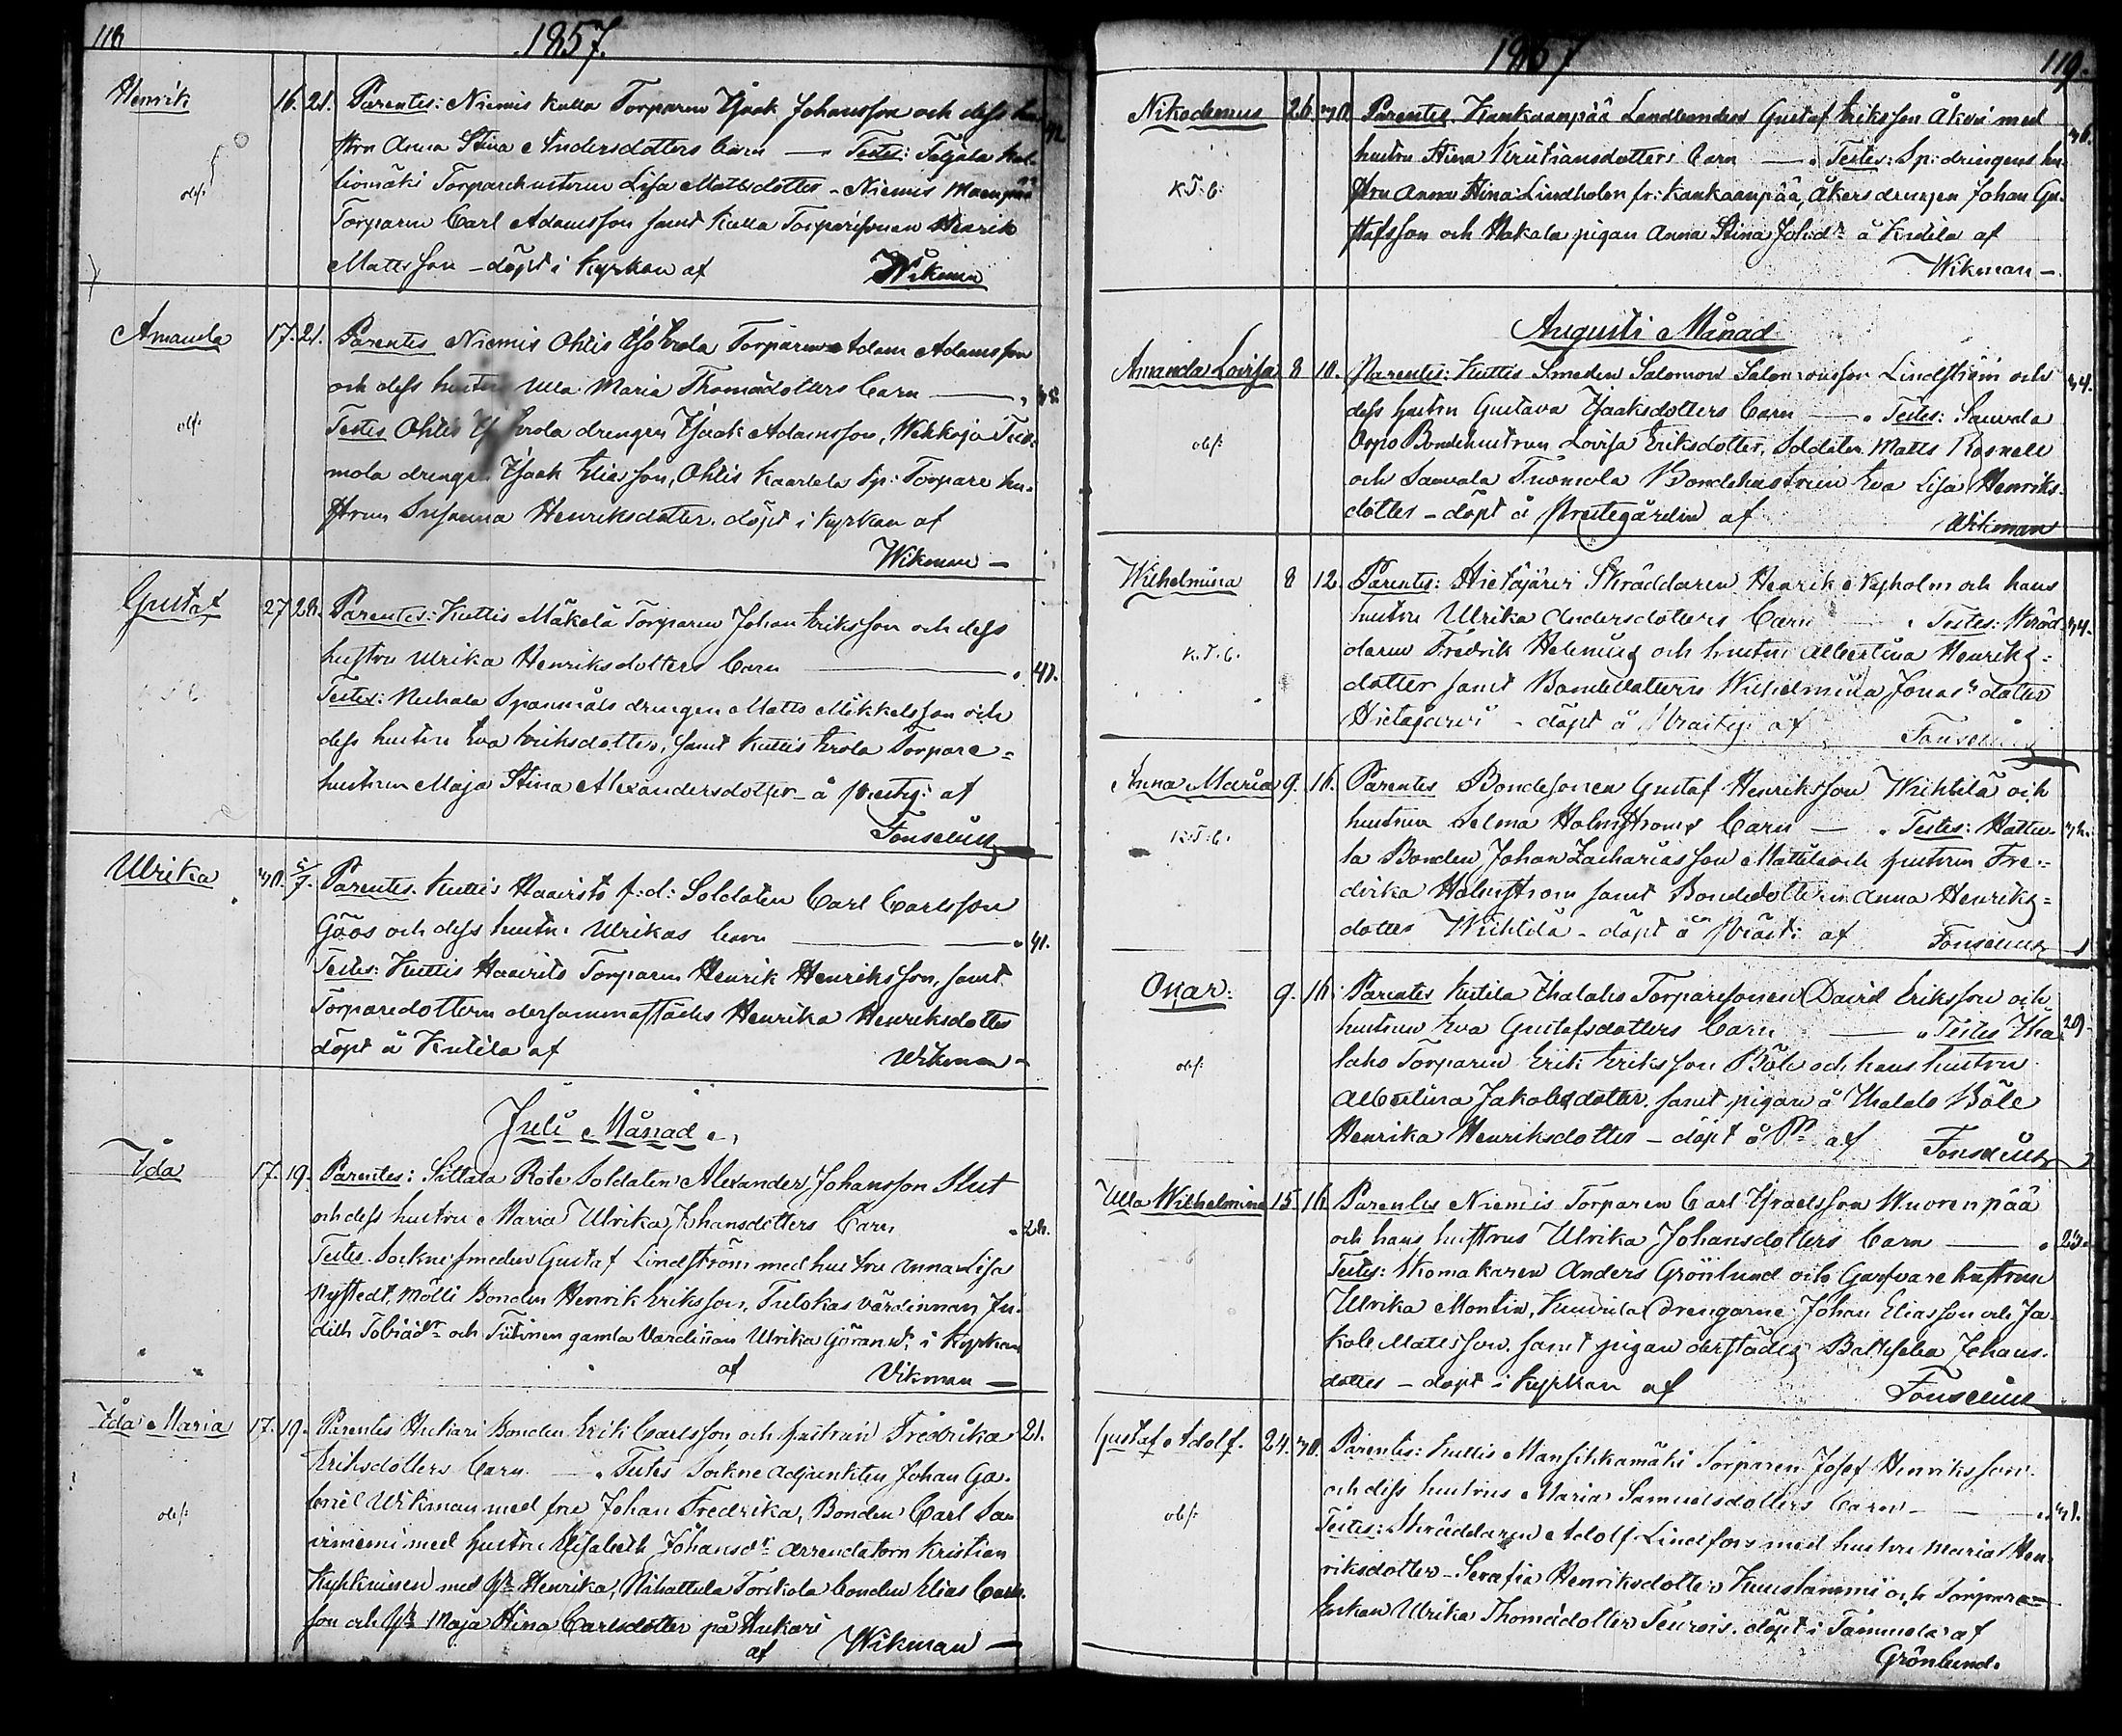 118
1857.
Henrik 16. 21. Parentes: Niemis Kulla Torparen Isaak Johansson och dess hu-
stru Anna Stina Andersdotters barn — Testes: Taljala Kal-
liomäki Torparehustrun Lisa Mattsdotter - Niemis
Torparen Carl Adamsson samt Kulla Torparesonen Henrik
Mattsson - döpt i Kyrkan af Wikman
Amanda 17. 21. Parentes Niemis Ohlis Torparen Adam Adamsson
och dess hustru Ulla Maria Thomædotters barn —
Testes Ohlis drengen Isaak Adamsson, Wehkoja Tuo-
mola drengen Isaak Eliasson, Ohlis Kaarlela Sp: Torpare hu-
strun Susanna Henriksdotter. döpt i Kyrkan af
Wikman —
Gustaf 27 28. Parentes: Kuttis Mäkelä Torparen Johan Eriksson och dess
hustru Ulrika Henriksdotters barn — 41.
Testes: Spanmåls drengen Matts Mikkelsson och
dess hustru Eva Eriksdotter, samt Kuttis Erola Torpare-
hustrun Maja Stina Alexandersdotter - å prestg: af
Fonselius
Ulrika 30. 5/7. Parentes. Kuttis Haavisto f: d: Soldaten Carl Carlsson
Göös och dess hustru Ulrikas barn — 41.
Testes: Kuttis Haavisto Torparen Henrik Henriksson, samt
Torparedottern dersammastädes Henrika Henriksdotter
döpt å Kutila af Wikman —
Juli Månad.
Ida 17. 19. Parentes: Sittala Rote Soldaten Alexander Johansson Slut
och dess hustru Maria Ulrika Johansdotters barn 28.
Testes. Socknesmeden Gustaf Lindström med hustru Anna Lisa
Nystedt, Mölli Bonden Henrik Eriksson, Tulokas värdinnan Ju-
dith Tobiædr och Tiitinen gamla Värdinnan Ulrika Göransdr i Kyrkan
af Vikman —
Ida Maria 17. 19. Parentes Huhari Bonden Erik Carlsson och hustrun Fredrika 21.
Eriksdotters barn. — Testes Sockne Adjunkten Johan Ga-
briel Wikman med fru Johan Fredrika, Bonden Carl
med hustru Elisabeth Johansdr Arrendatorn Kristian
Kyhkynen med Henrika, Bonden Elias Carls-
son och Maja Stina Carlsdotter på Huhari
af Wikman —
1857
119.
Nikodemus 26. 30. Parentes. Kankaanpää Landbonden Gustaf Eriksson Äkoi med 36.
hustru Stina Kristiansdotters barn — Testes: Sp: drengens hu-
K.T.b. stru Anna Stina Lindholm fr: Kankaanpää, Åkers drengen Johan Gu-
stafsson och Hakala pigan Anna Stina Johsdr å Kutila af
Wikman —
Augusti Månad
Amanda Lovisa 8 10. Parentes: Kuttis Smeden Salomon Salomonsson Lindström och 34.
dess hustru Gustava Isaaksdotters barn — Testes: Sauvala
Orpo Bondehustrun Lovisa Eriksdotter, Soldaten Matts Rosnell
och Sauvala Tuomola Bondehustrun Eva Lisa Henriks-
dotter - döpt å Prestegården af Wikman
Wilhelmina 8 12. Parentes: Hietajärvi Skräddaren Henrik Nyholm och hans
hustru Ulrika Andersdotters barn — Testes: Skräd- 34.
K.T.b. daren Fredrik Helenius och hustru Albertina Henriks-
dotter samt Bondedottern Wilhelmina Jonasdotter
Hietajärvi - döpt å Prestg: af Fonselius
Anna Maria 9. 16. Parentes Bondesonen Gustaf Henriksson Wiihtilä och
K.T.b. hustrun Selma Holmströms barn — Testes: Hattu-
la Bonden Johan Zachariasson Mattila och hustrun Fre-
drika Holmström samt Bondedottern Anna Henriks-
dotter Wiihtilä - döpt å Prästg: af Fonselius
Oskar: 9. 16. Parentes Kutila Ihalaho Torparesonen David Eriksson och
hustrun Eva Gustafsdotters barn — Testes Iha- 29.
laho Torparen Erik Eriksson Böle och hans hustru
Albertina Jakobsdotter. samt pigan å Ihalaho Böle
Henrika Henriksdotter - döpt å Pr. af Fonselius
Ulla Wilhelmina 15. 16. Parentes Niemis Torparen Carl Israelsson Wuorenpää
och hans hustrus Ulrika Johansdotters barn — 23.
Testes: Skomakaren Anders Grönlund och Garfvare hustrun
Ulrika Montin, drengarne Johan Eliasson och Ja-
kob Mattsson. samt pigan derstädes Bathseba Johans-
dotter - döpt i Kyrkan af Fonselius
Gustaf Adolf. 24. 30. Parentes: Kuttis Mansikkamäki Torparen Josef Henriksson
och dess hustrus Maria Samuelsdotters barn — 31.
Testes: Skräddaren Adolf Lindfors med hustru Maria Hen-
riksdotter - Serafia Henriksdotter Kuuslammi och Torpare-
Enkan Ulrika Thomædotter döpt i Tammola af
Grönlund.